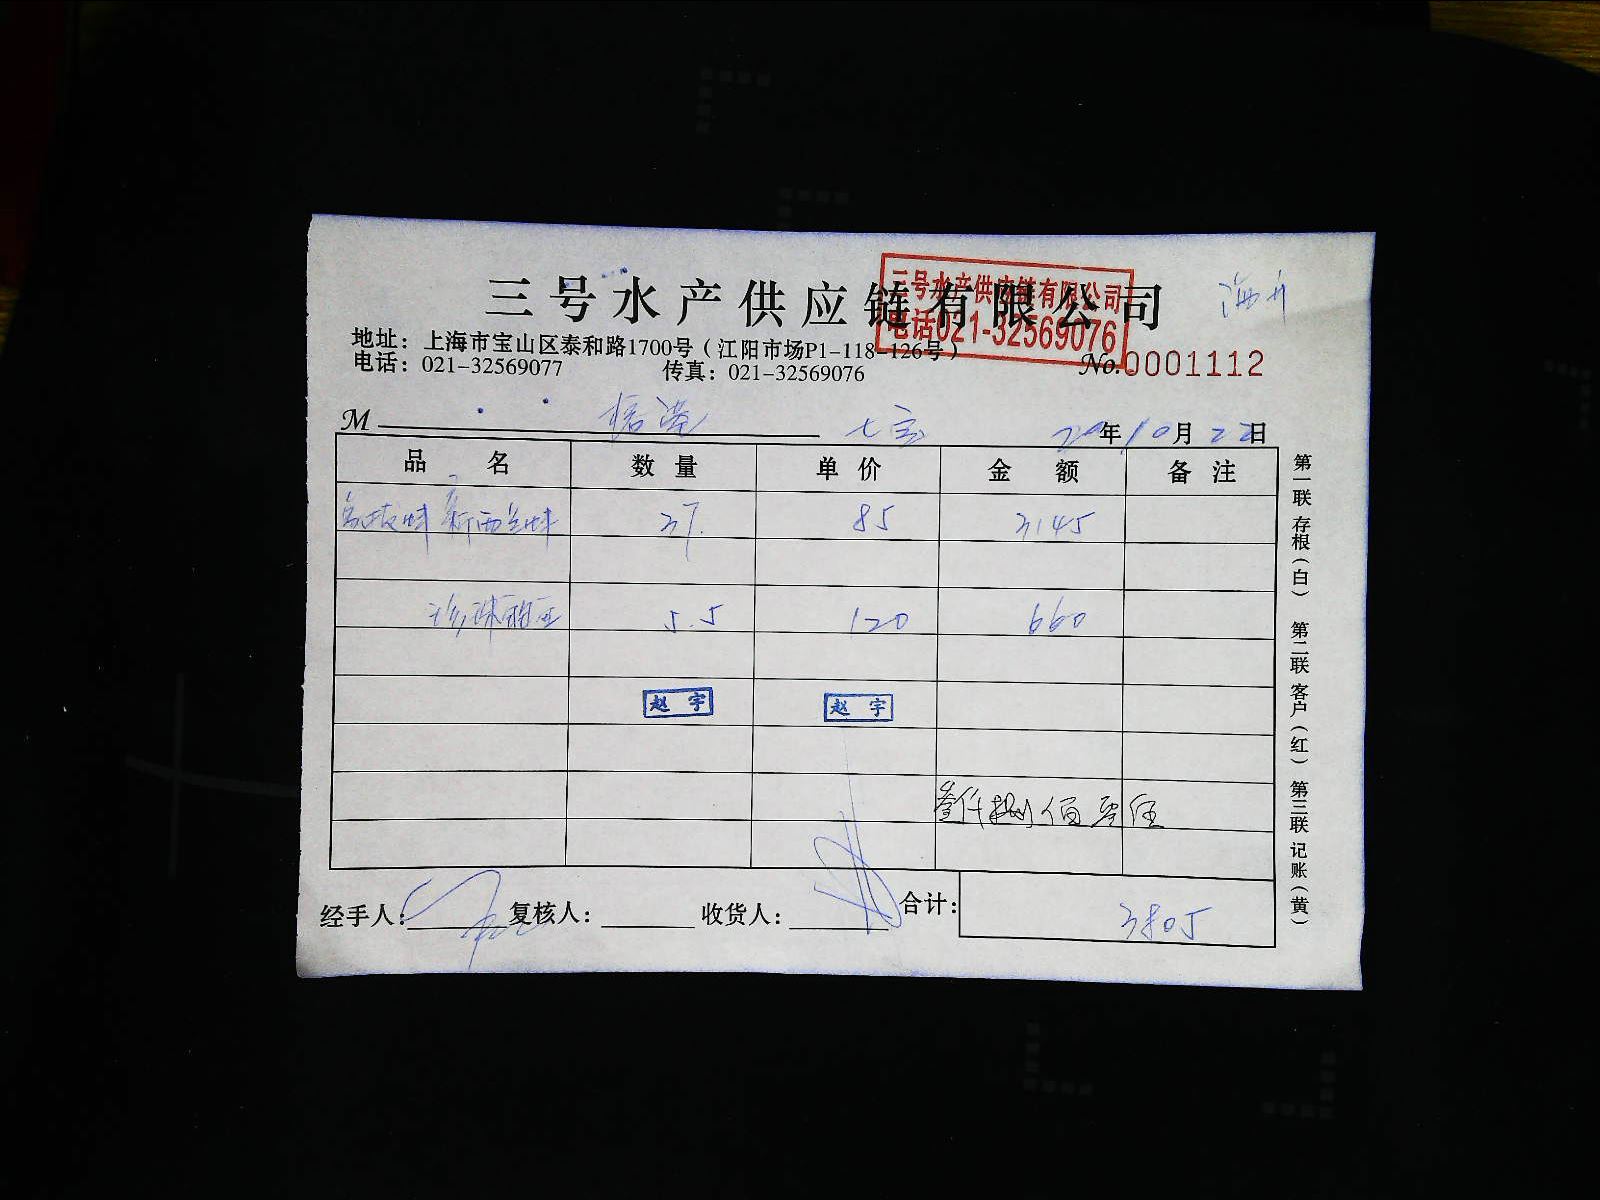 三号水产供应链有限公司
三号水产供应链有限公司
电话021-32569076
地址：上海市宝山区泰和路1700号（江阳市场P1-118-126号）
电话：021-32569077 传真：021-32569076
No.0001112
M 七宝 20年10月22日
品名 数量 单价 金额 备注
新西兰蚌 37. 85 3145
珍珠 5.5 120 660
赵宇 赵宇
叁仟捌佰零伍
经手人： 复核人： 收货人： 合计： 3805
第一联 存根（白） 第二联 客户（红） 第三联 记账（黄）